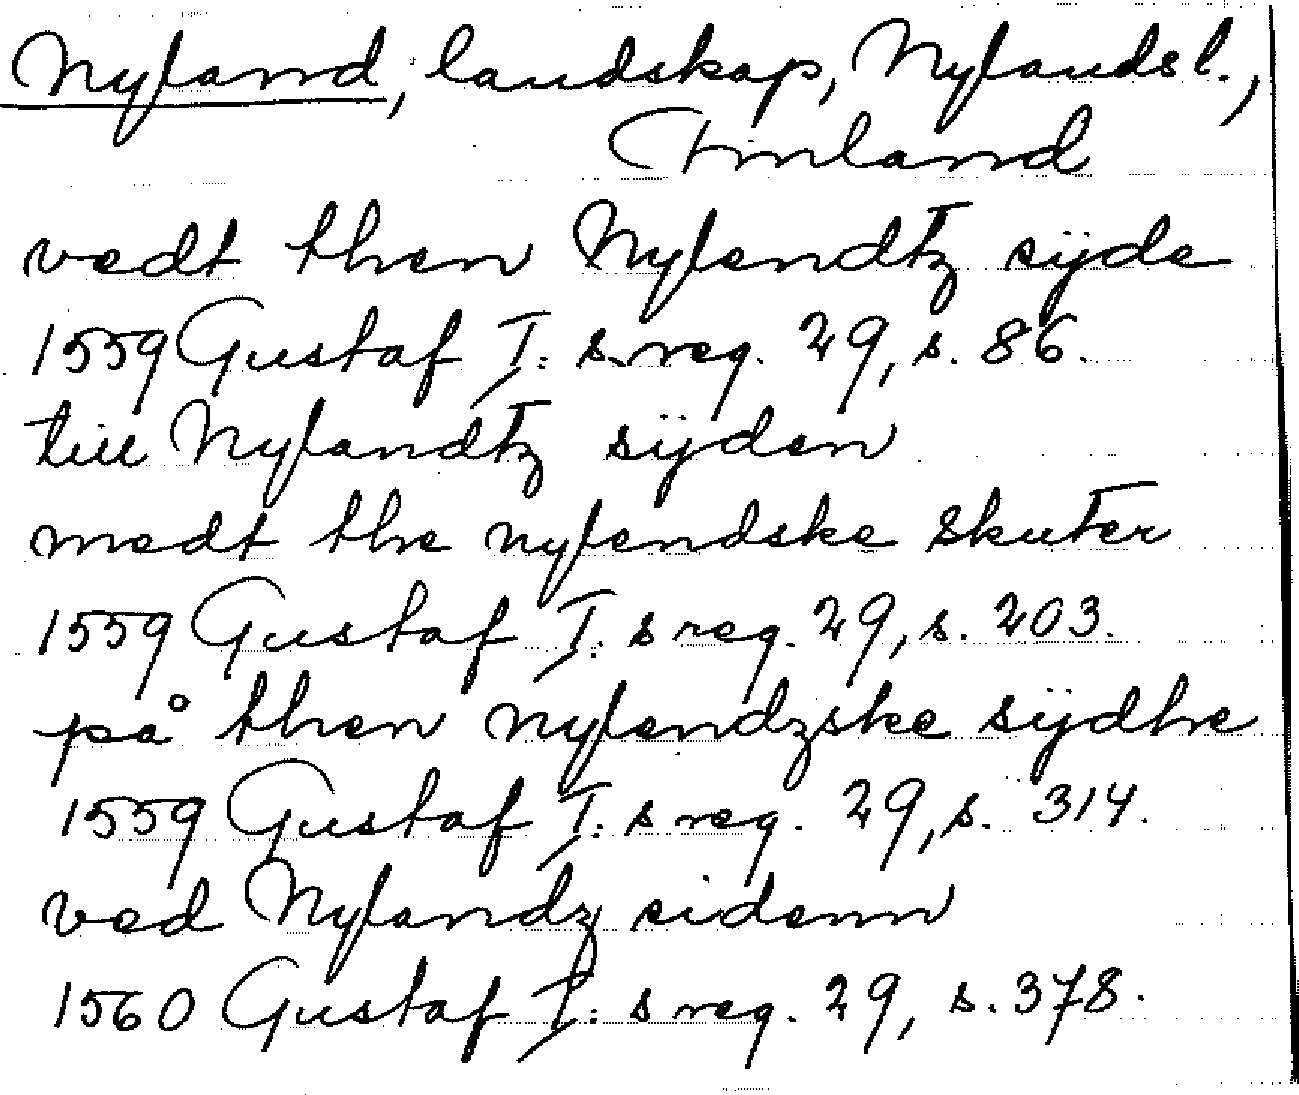 Nyland, landskap, Nylands l.,
Finland
vedt then Nylendtz sÿde
1559 Gustaf I: s. reg. 29, s. 86.
till Nylandtz sÿden
medt the nylendske skuter
1559 Gustaf I: s reg. 29, s. 203.
på then nylendzske sÿdhe
1559 Gustaf I: s reg. 29, s. 314.
ved Nylandz sidenn
1560 Gustaf I: s reg. 29, s. 378.